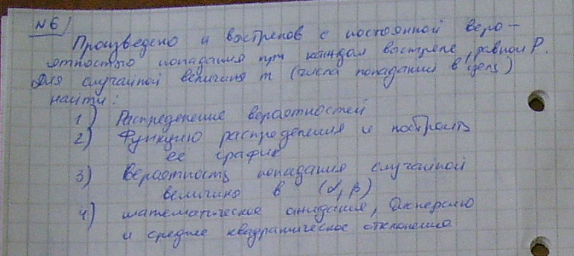 №6)
Произведено n выстрелов с постоянной веро-
ятностью попадания при каждом выстреле, равной P.
Для случайной величины m (числа попаданий в цель)
найти:
1) Распределение вероятностей
2) Функцию распределения и построить
её график
3) Вероятность попадания случайной
величины в (α, β)
4) математическое ожидание, дисперсию
и среднее квадратическое отклонение